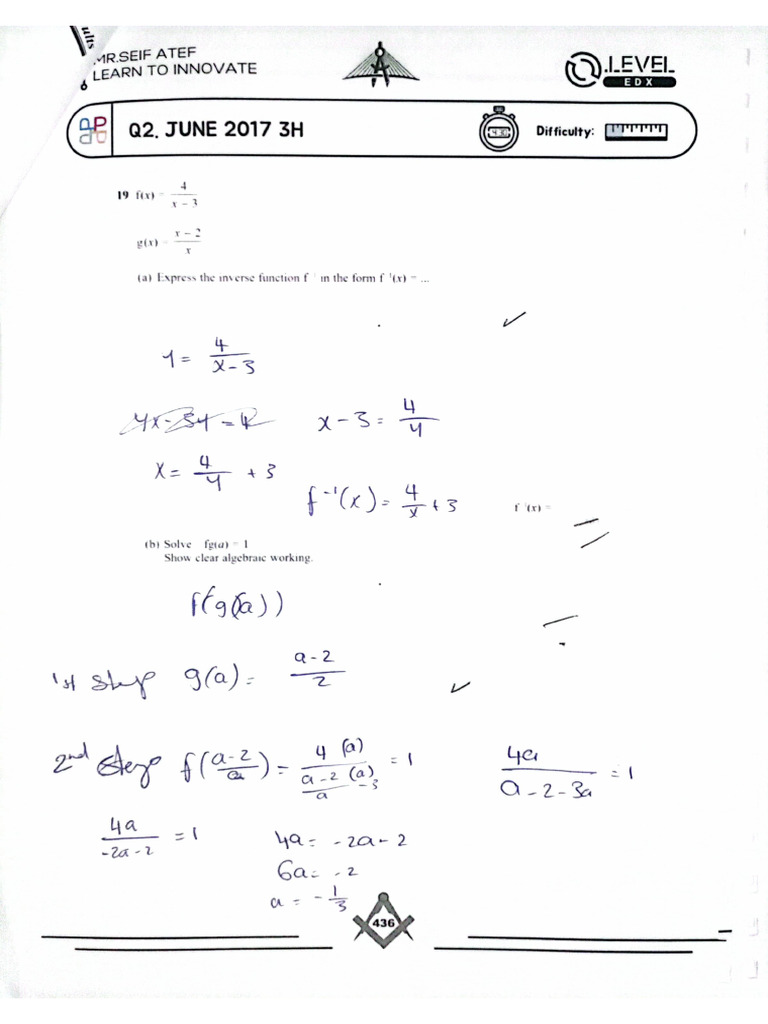 MR.SEIF ATEF
LEARN TO INNOVATE
.LEVEL
EDX
Q2. JUNE 2017 3H
Difficulty:
19 f(x) = 4/(x − 3)
g(x) = (x − 2)/x
(a) Express the inverse function f⁻¹ in the form f⁻¹(x) = ...
y = 4/(x-3)
yx-3y = 4
x-3 = 4/y
x = 4/y + 3
f⁻¹(x) = 4/x + 3
f⁻¹(x) =
(b) Solve fg(a) = 1
Show clear algebraic working.
f(g(a))
1st step g(a) = (a-2)/2
2nd step f((a-2)/a) = 4(a)/((a-2)(a)/a -3) = 1
4a/(a-2-3a) = 1
4a/(-2a-2) = 1
4a = -2a-2
6a = -2
a = -1/3
436